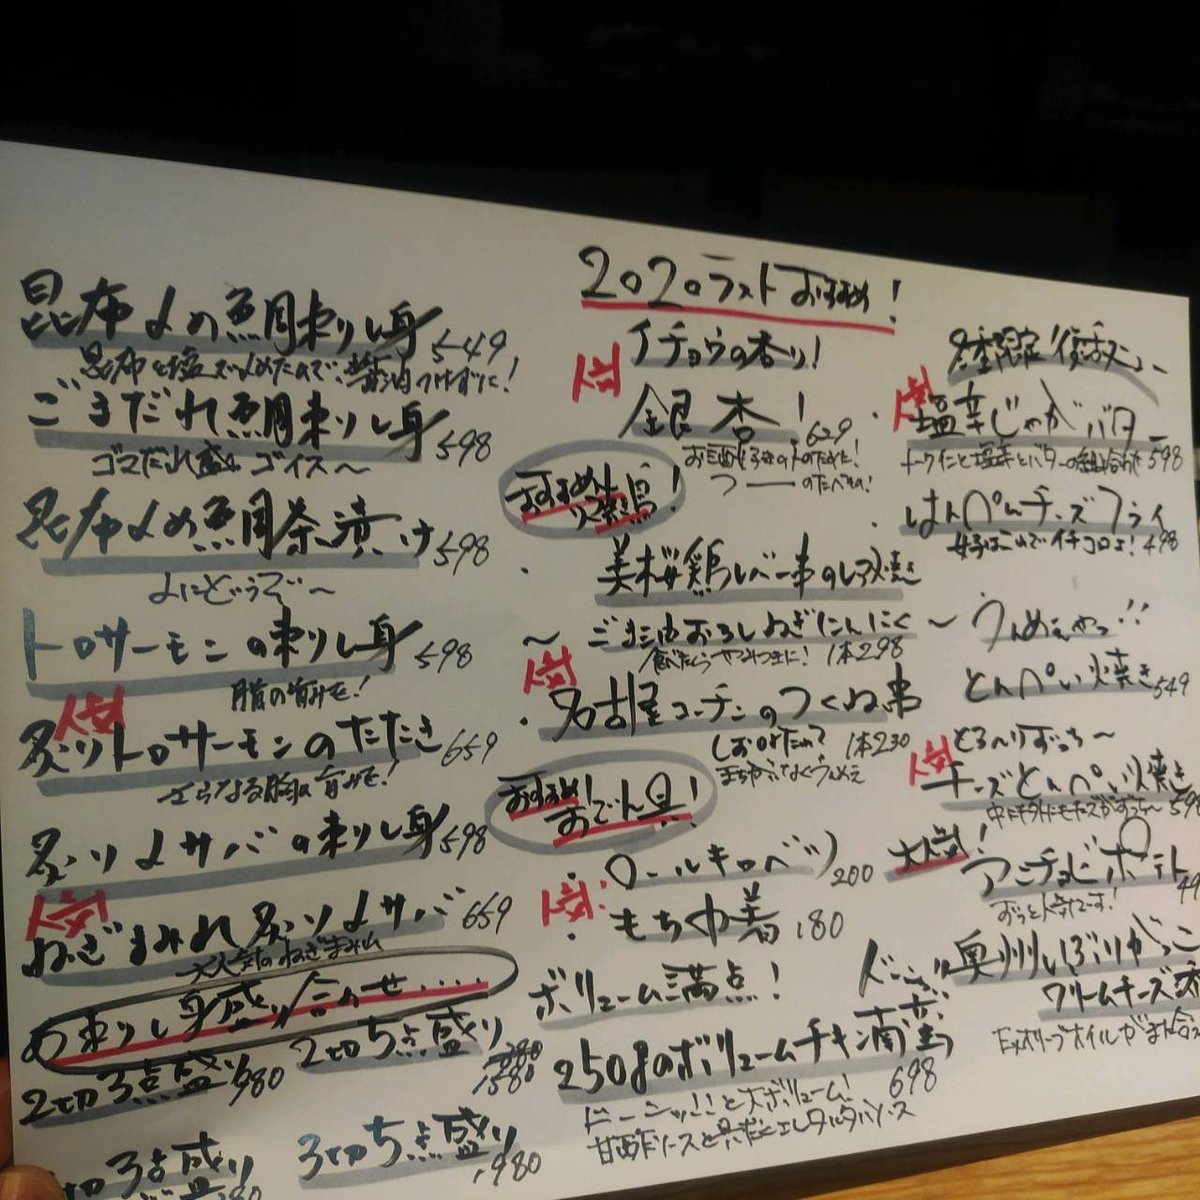 2020ラストおすすめ!
昆布〆の鯛刺し身 549
昆布と塩で〆めたので、醤油つけずに!
ごまだれ鯛刺し身 598
ゴマだれ盛り ゴイス〜
昆布〆め鯛茶漬け 598
〆にどうぞ〜
トロサーモンの刺し身 598
脂の旨みを!
人気
炙りトロサーモンのたたき 659
さらなる脂の旨みを!
炙り〆サバの刺し身 598
人気
ねぎまみれ炙り〆サバ 659
大人気のねぎまみれ
お刺し身盛り合わせ...
2切3点盛り 980
2切5点盛り 1580
3点盛り
3切5点盛り 1980
イチョウの香り!
人気
銀杏! 629
お酒好きの人のために!
つーーのたべもの!
おすすめ!
火焼鳥!
美桜鶏レバー串のレア焼き
〜ごま油おろしねぎにんにく〜
1本298
人気
名古屋コーチンのつくね串
しおorたれ? 1本230
まちがいなくうんめえ
おすすめ!
おでん具!
ロールキャベツ 200
人気!
もち巾着 180
ボリューム満点!
250gのボリュームチキン南蛮 698
ドーーンッ!!と大ボリューム!
冬季限定!復活メニュー
人気
塩辛じゃがバター 598
はんぺんチーズフライ 498
女子はこれでイチコロよ!
うんめぇやつ!!
とんぺい焼き 549
とろ〜りずっち〜
人気
チーズとんぺい焼き
大人気!
アンチョビポテト
ずっと人気です!
奥州いぶりがっこ
クリームチーズ添
オリーブオイルがまた合